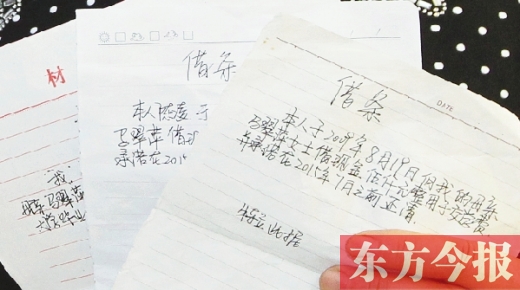 材
我
借条
本人
马翠萍借
承诺在2015
DATE
借条
本人于2008年8月19日向我的朋友
马翠萍女士借现金伍仟元整用于
并承诺在2015年1月之前还清
特立此据
东方今报